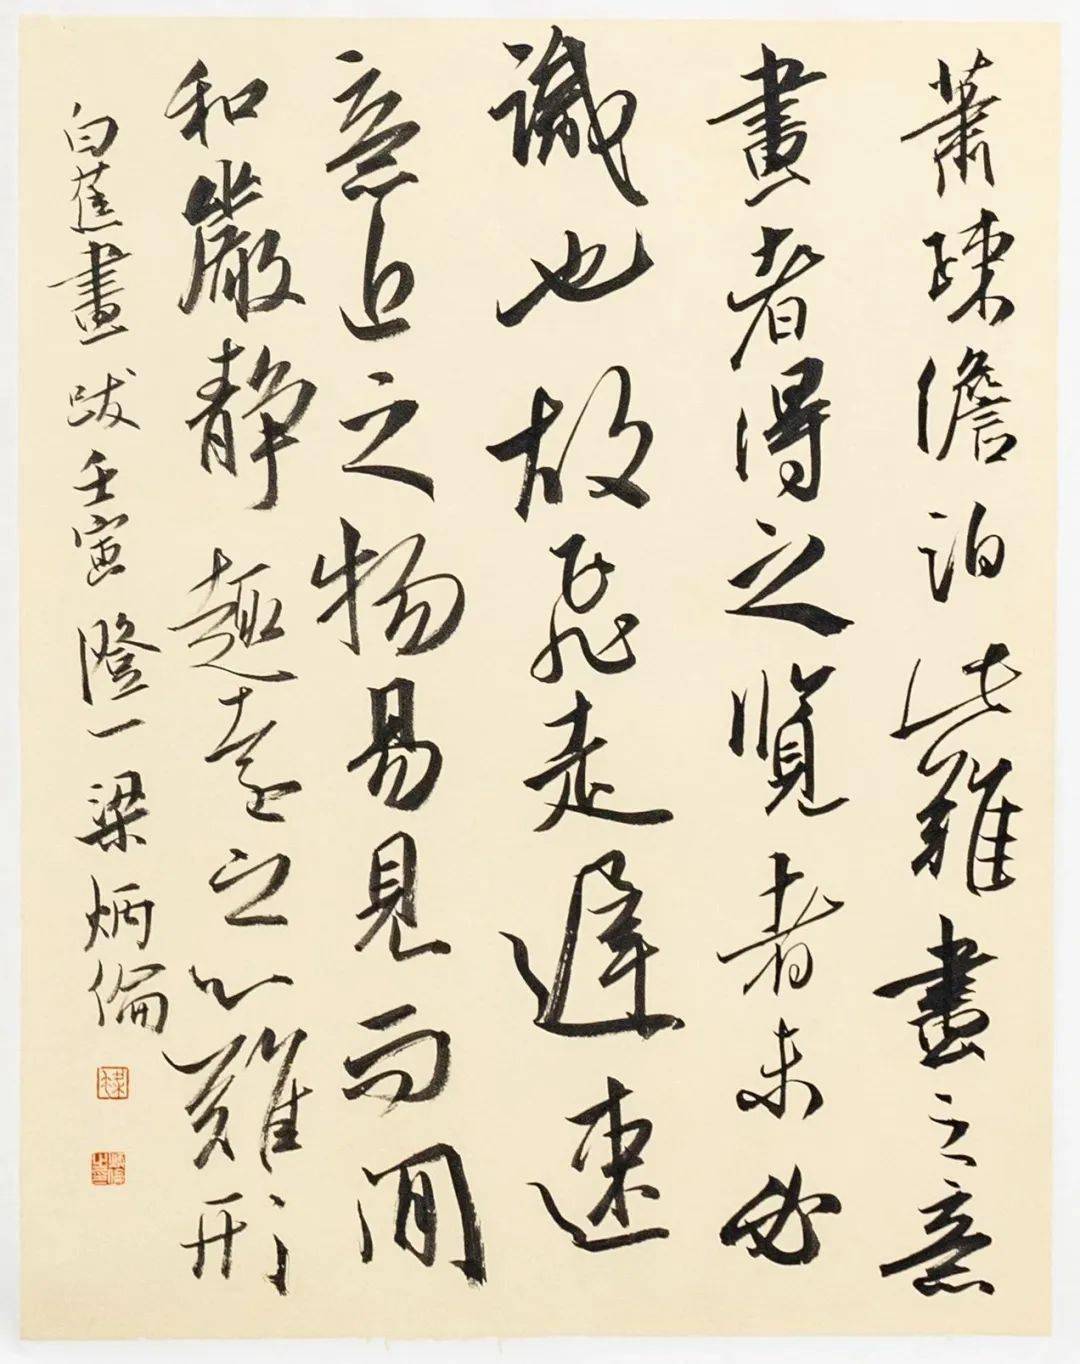 蕭疎澹泊此難畫之意
畫者得之覽者未必
識也故飛走遲速
意近之物易見而閒
和嚴靜趣遠之心難形
白蕉畫跋壬寅澄一梁炳倫